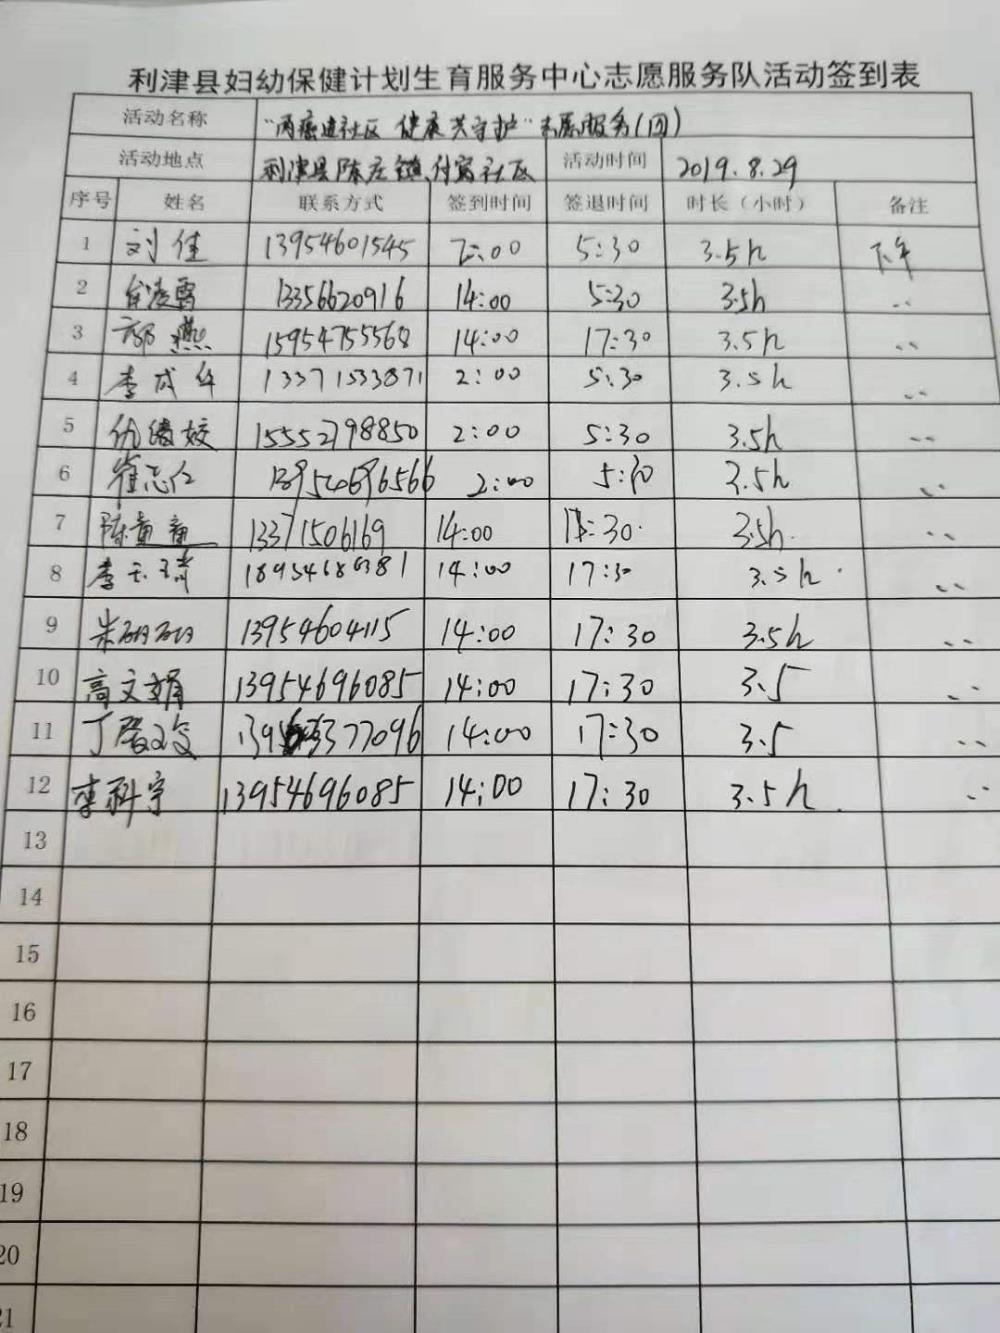 利津县妇幼保健计划生育服务中心志愿服务队活动签到表
活动名称 "两癌进社区 健康共守护"志愿服务(四)
活动地点 利津县陈庄镇付窝社区 活动时间 2019.8.29
序号 姓名 联系方式 签到时间 签退时间 时长（小时） 备注
1 刘佳 13954601545 2:00 5:30 3.5h 下午
2 13356620916 14:00 5:30 3.5h ..
3 燕 15954755568 14:00 17:30 3.5h ..
4 李成 13371533871 2:00 5:30 3.5h ..
5 仇 姣 15552798850 2:00 5:30 3.5h ..
6 崔志仁 13954696566 2:00 5:30 3.5h ..
7 陈 13371506169 14:00 17:30. 3.5h. ..
8 李玉靖 14:00 17:30 3.5h. ..
9 朱砌砌 13954604115 14:00 17:30 3.5h ..
10 高文娟 13954696085 14:00 17:30 3.5 ..
11 丁 14:00 17:30 3.5 ..
12 李科宇 13954696085 14:00 17:30 3.5h. ..
13
14
15
16
17
18
19
20
21